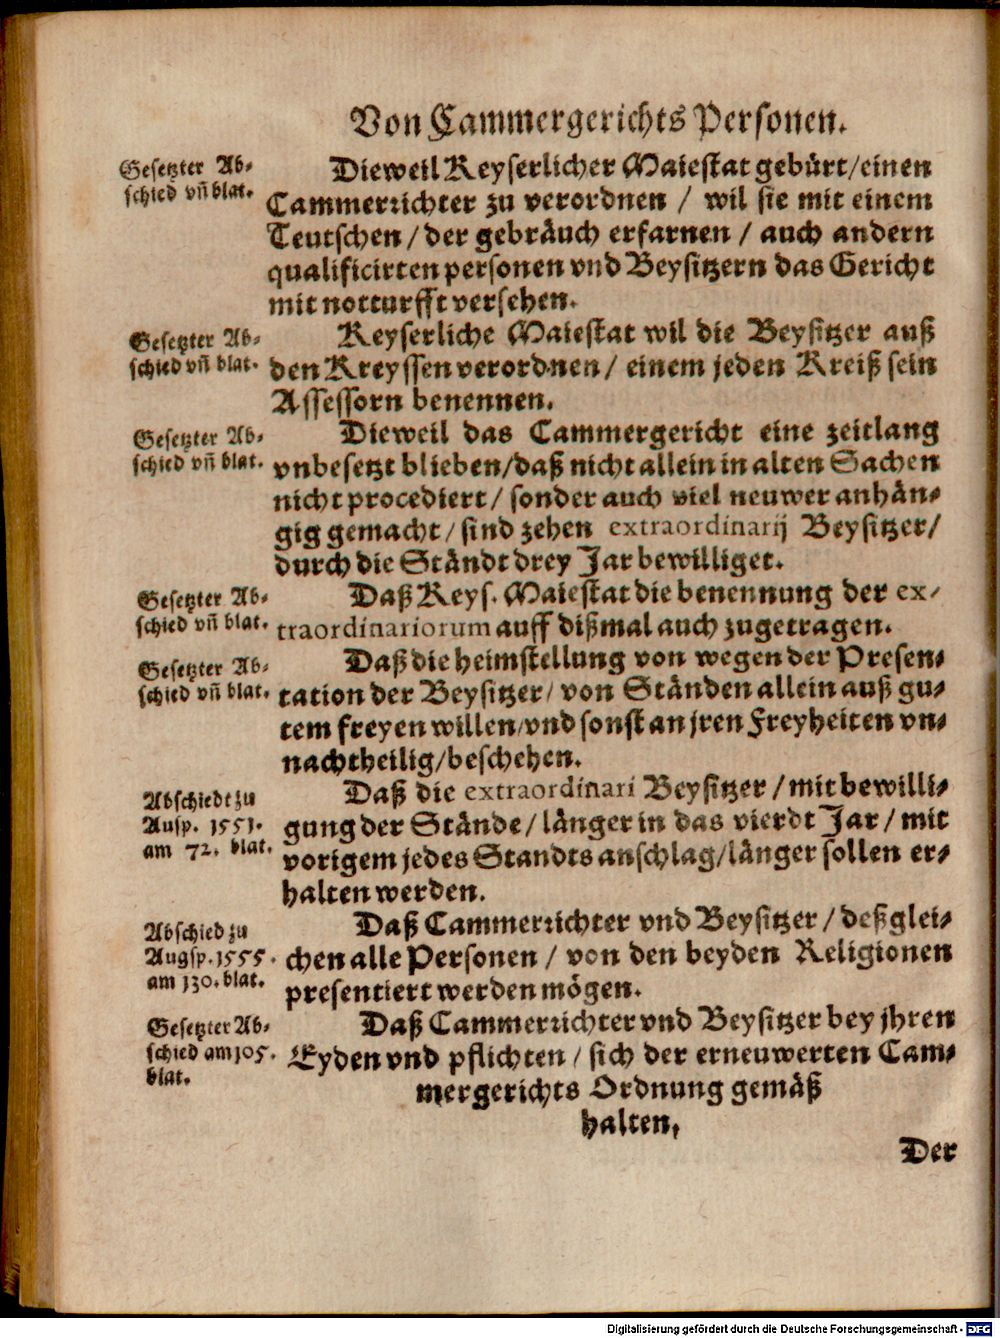 Von Cammergerichts Personen.
Gesetzter Ab-
schied vñ blat.
Dieweil Keyserlicher Maiestat gebürt/einen
Cammerrichter zu verordnen / wil sie mit einem
Teutschen / der gebräuch erfarnen / auch andern
qualificirten personen vnd Beysitzern das Gericht
mit notturfft versehen.
Gesetzter Ab-
schied vñ blat.
Keyserliche Maiestat wil die Beysitzer auß
den Kreyssen verordnen / einem jeden Kreiß sein
Assessorn benennen.
Gesetzter Ab-
schied vñ blat.
Dieweil das Cammergericht eine zeitlang
vnbesetzt blieben/daß nicht allein in alten Sachen
nicht procediert / sonder auch viel neuwer anhän-
gig gemacht / sind zehen extraordinarij Beysitzer/
durch die Ständt drey Jar bewilliget.
Gesetzter Ab-
schied vñ blat.
Daß Keys. Maiestat die benennung der ex-
traordinariorum auff dißmal auch zugetragen.
Gesetzter Ab-
schied vñ blat.
Daß die heimstellung von wegen der Presen-
tation der Beysitzer/ von Ständen allein auß gu-
tem freyen willen/vnd sonst an jren Freyheiten vn-
nachtheilig/beschehen.
Abschiedt zu
Ausp. 1551.
am 72. blat.
Daß die extraordinari Beysitzer / mit bewilli-
gung der Stände / länger in das vierdt Jar / mit
vorigem jedes Standts anschlag/länger sollen er-
halten werden.
Abschied zu
Augsp. 1555.
am 130. blat.
Daß Cammerrichter vnd Beysitzer / deßglei-
chen alle Personen / von den beyden Religionen
presentiert werden mögen.
Gesetzter Ab-
schied am 105.
blat.
Daß Cammerrichter vnd Beysitzer bey jhren
Eyden vnd pflichten / sich der erneuwerten Cam-
mergerichts Ordnung gemäß
halten,
Der
Digitalisierung gefördert durch die Deutsche Forschungsgemeinschaft - DFG